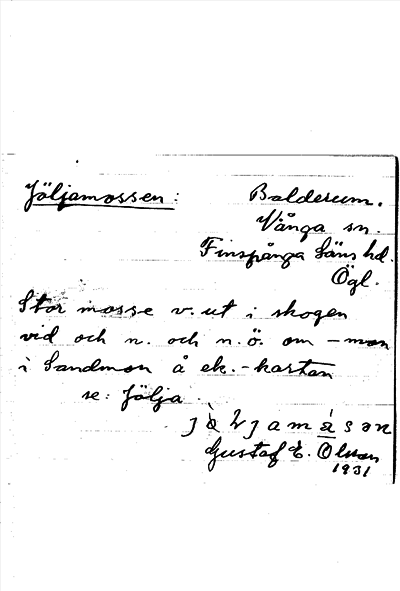 Jöljamossen:
Balderum.
Vånga sn.
Finspånga läns hd.
Ögl.
Stor mosse v. ut i skogen
vid och n. och n.ö. om -mon
i Sandmon å ek.-kartan
se: Jölja
Gustaf E. Olsson
1931